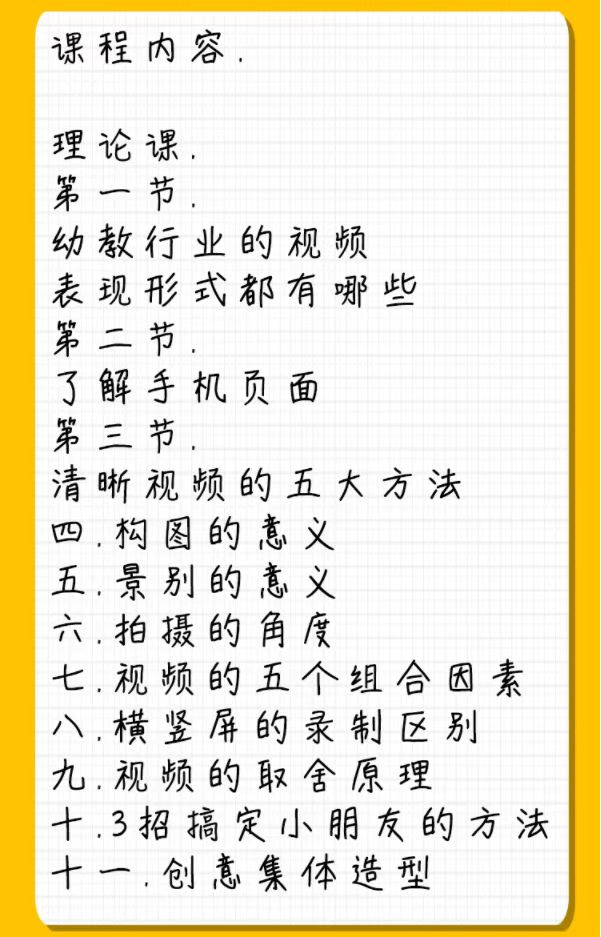 课程内容.
理论课.
第一节.
幼教行业的视频
表现形式都有哪些
第二节.
了解手机页面
第三节.
清晰视频的五大方法
四.构图的意义
五.景别的意义
六.拍摄的角度
七.视频的五个组合因素
八.横竖屏的录制区别
九.视频的取舍原理
十.3招搞定小朋友的方法
十一.创意集体造型